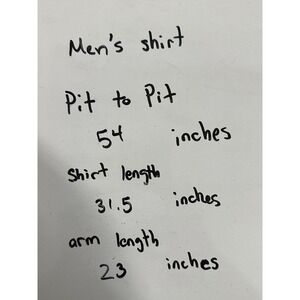 Men's shirt
Pit to Pit
54 inches
Shirt length
31.5 inches
arm length
23 inches